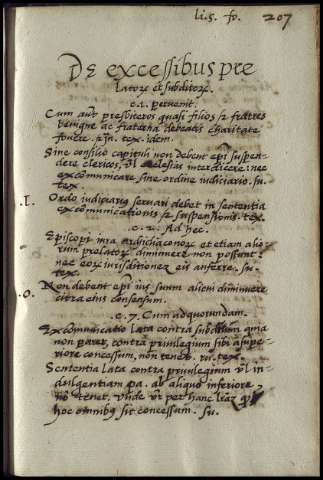 li. 5. fo. 207
De excessibus pre
latorꝝ et subditorꝝ.
c. 1. pervenit.
Cum aut̃ presbiteros quasi filios et fratres
benigne ac fraterna debeatis charitate
fovere. tex. idem.
Sine consilio capituli non debent epĩ suspen
dere clericos, vel ecclesias interdicere: nec
excõmunicare sine ordine iudiciario. su.
tex.
.I. Ordo iudiciarius servari debet in sententia
excõmunicationis et suspensionis. tex.
c. 2. Ad hec.
Episcopi iura archidiaconorꝝ et etiam alio
rum prelatorꝝ diminuere non possunt:
nec eorꝝ iurisditionẽ eis auferre. su.
tex.
.O. Non debent epĩ ius suum alieni diminuere
citra eius consensum.
.c. 7. Cum ad quorundam.
Excõmunicatio lata contra subditum quia
non paret, contra privilegium sibi a supe-
riore concessum, non tenet.
Sententia lata contra privilegium vl in
dulgentiam pa. ab aliquo inferiore,
nõ tenet. Unde vr̃ per hanc
hoc omnibꝰ sit concessum. su.